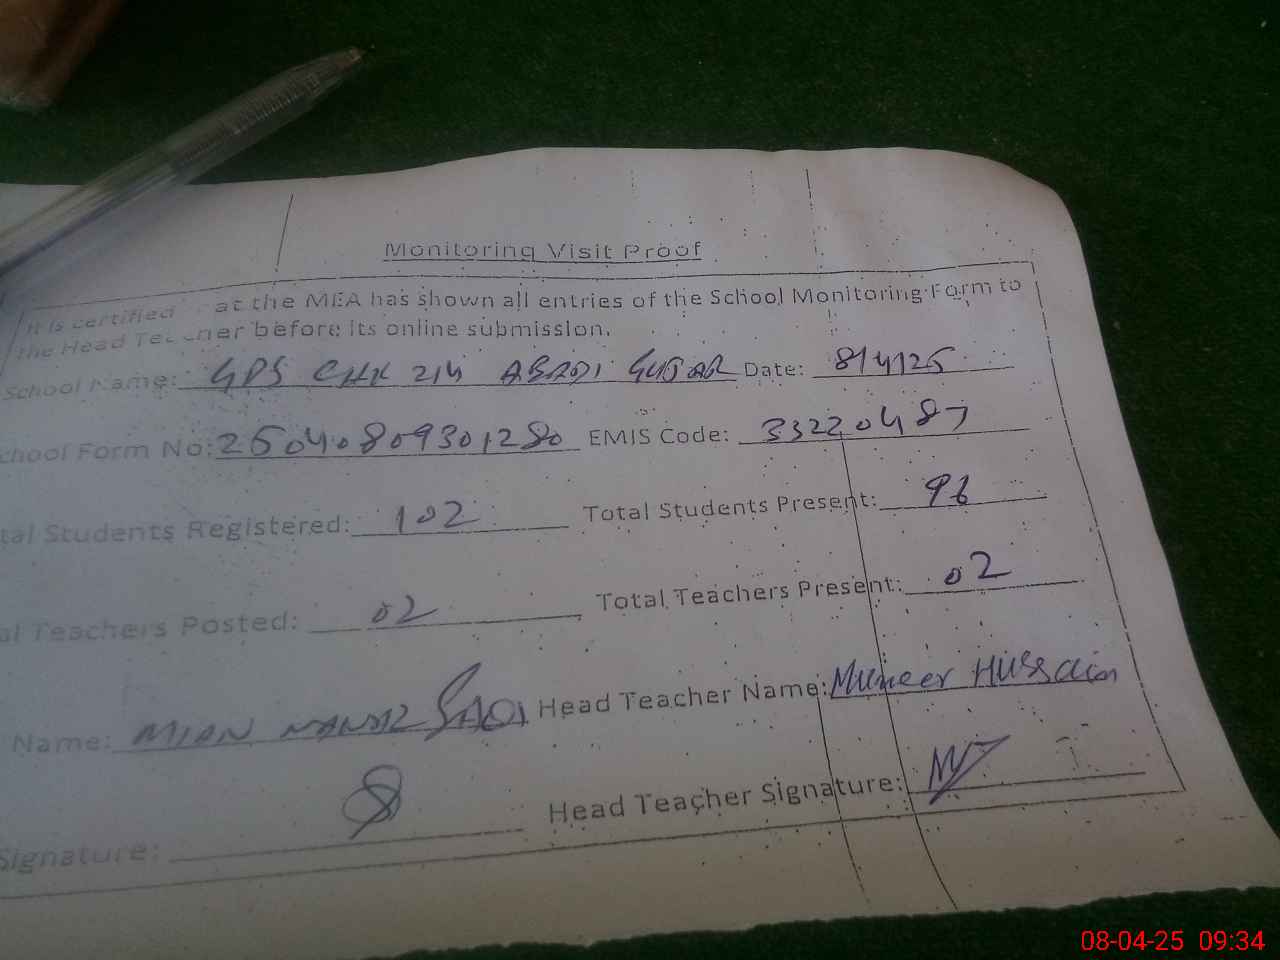 Monitoring Visit Proof
It is certified at the MEA has shown all entries of the School Monitoring Form to
the Head Teacher before its online submission.
School Name: GPS CHK 214 ABADI GUJAR Date: 8/4/25
chool Form No: 25040809301280 EMIS Code: 33220487
tal Students Registered: 102 Total Students Present: 96
al Teachers Posted: 02 Total Teachers Present: 02
Name: MIAN Head Teacher Name: Muneer Hussain
Signature: Head Teacher Signature:
08-04-25 09:34